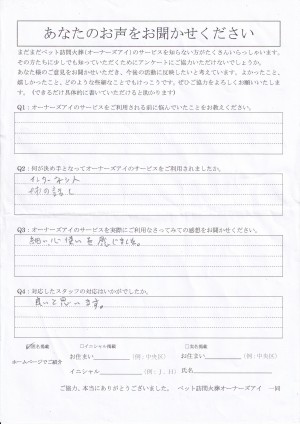 あなたのお声をお聞かせください
まだまだペット訪問火葬(オーナーズアイ)のサービスを知らない方がたくさんいらっしゃいます。
その方たちに少しでも知っていただくためにアンケートにご協力いただけないでしょうか。
あなた様のご意見をお聞かせいただき、今後の活動に反映したいと考えています。よかったこと、
嬉しかったこと、どのような些細なことでもけっこうです。ぜひご協力をよろしくお願いいたしま
す。(できるだけ具体的に書いていただけると助かります)
Q1：オーナーズアイのサービスをご利用される前に悩んでいたことをお教えください。
Q2：何が決め手となってオーナーズアイのサービスをご利用されましたか。
インターネット
Q3：オーナーズアイのサービスを実際にご利用なさってみての感想をお聞かせください。
細い心使いを感じました。
Q4：対応したスタッフの対応はいかがでしたか。
良いと思います。
□イニシャル掲載
ホームページでご紹介
お住まい (例：中央区)
お住まい (例：中央区)
イニシャル (例：J．H)
氏名
ご協力、本当にありがとうございました。 ペット訪問火葬オーナーズアイ 一同